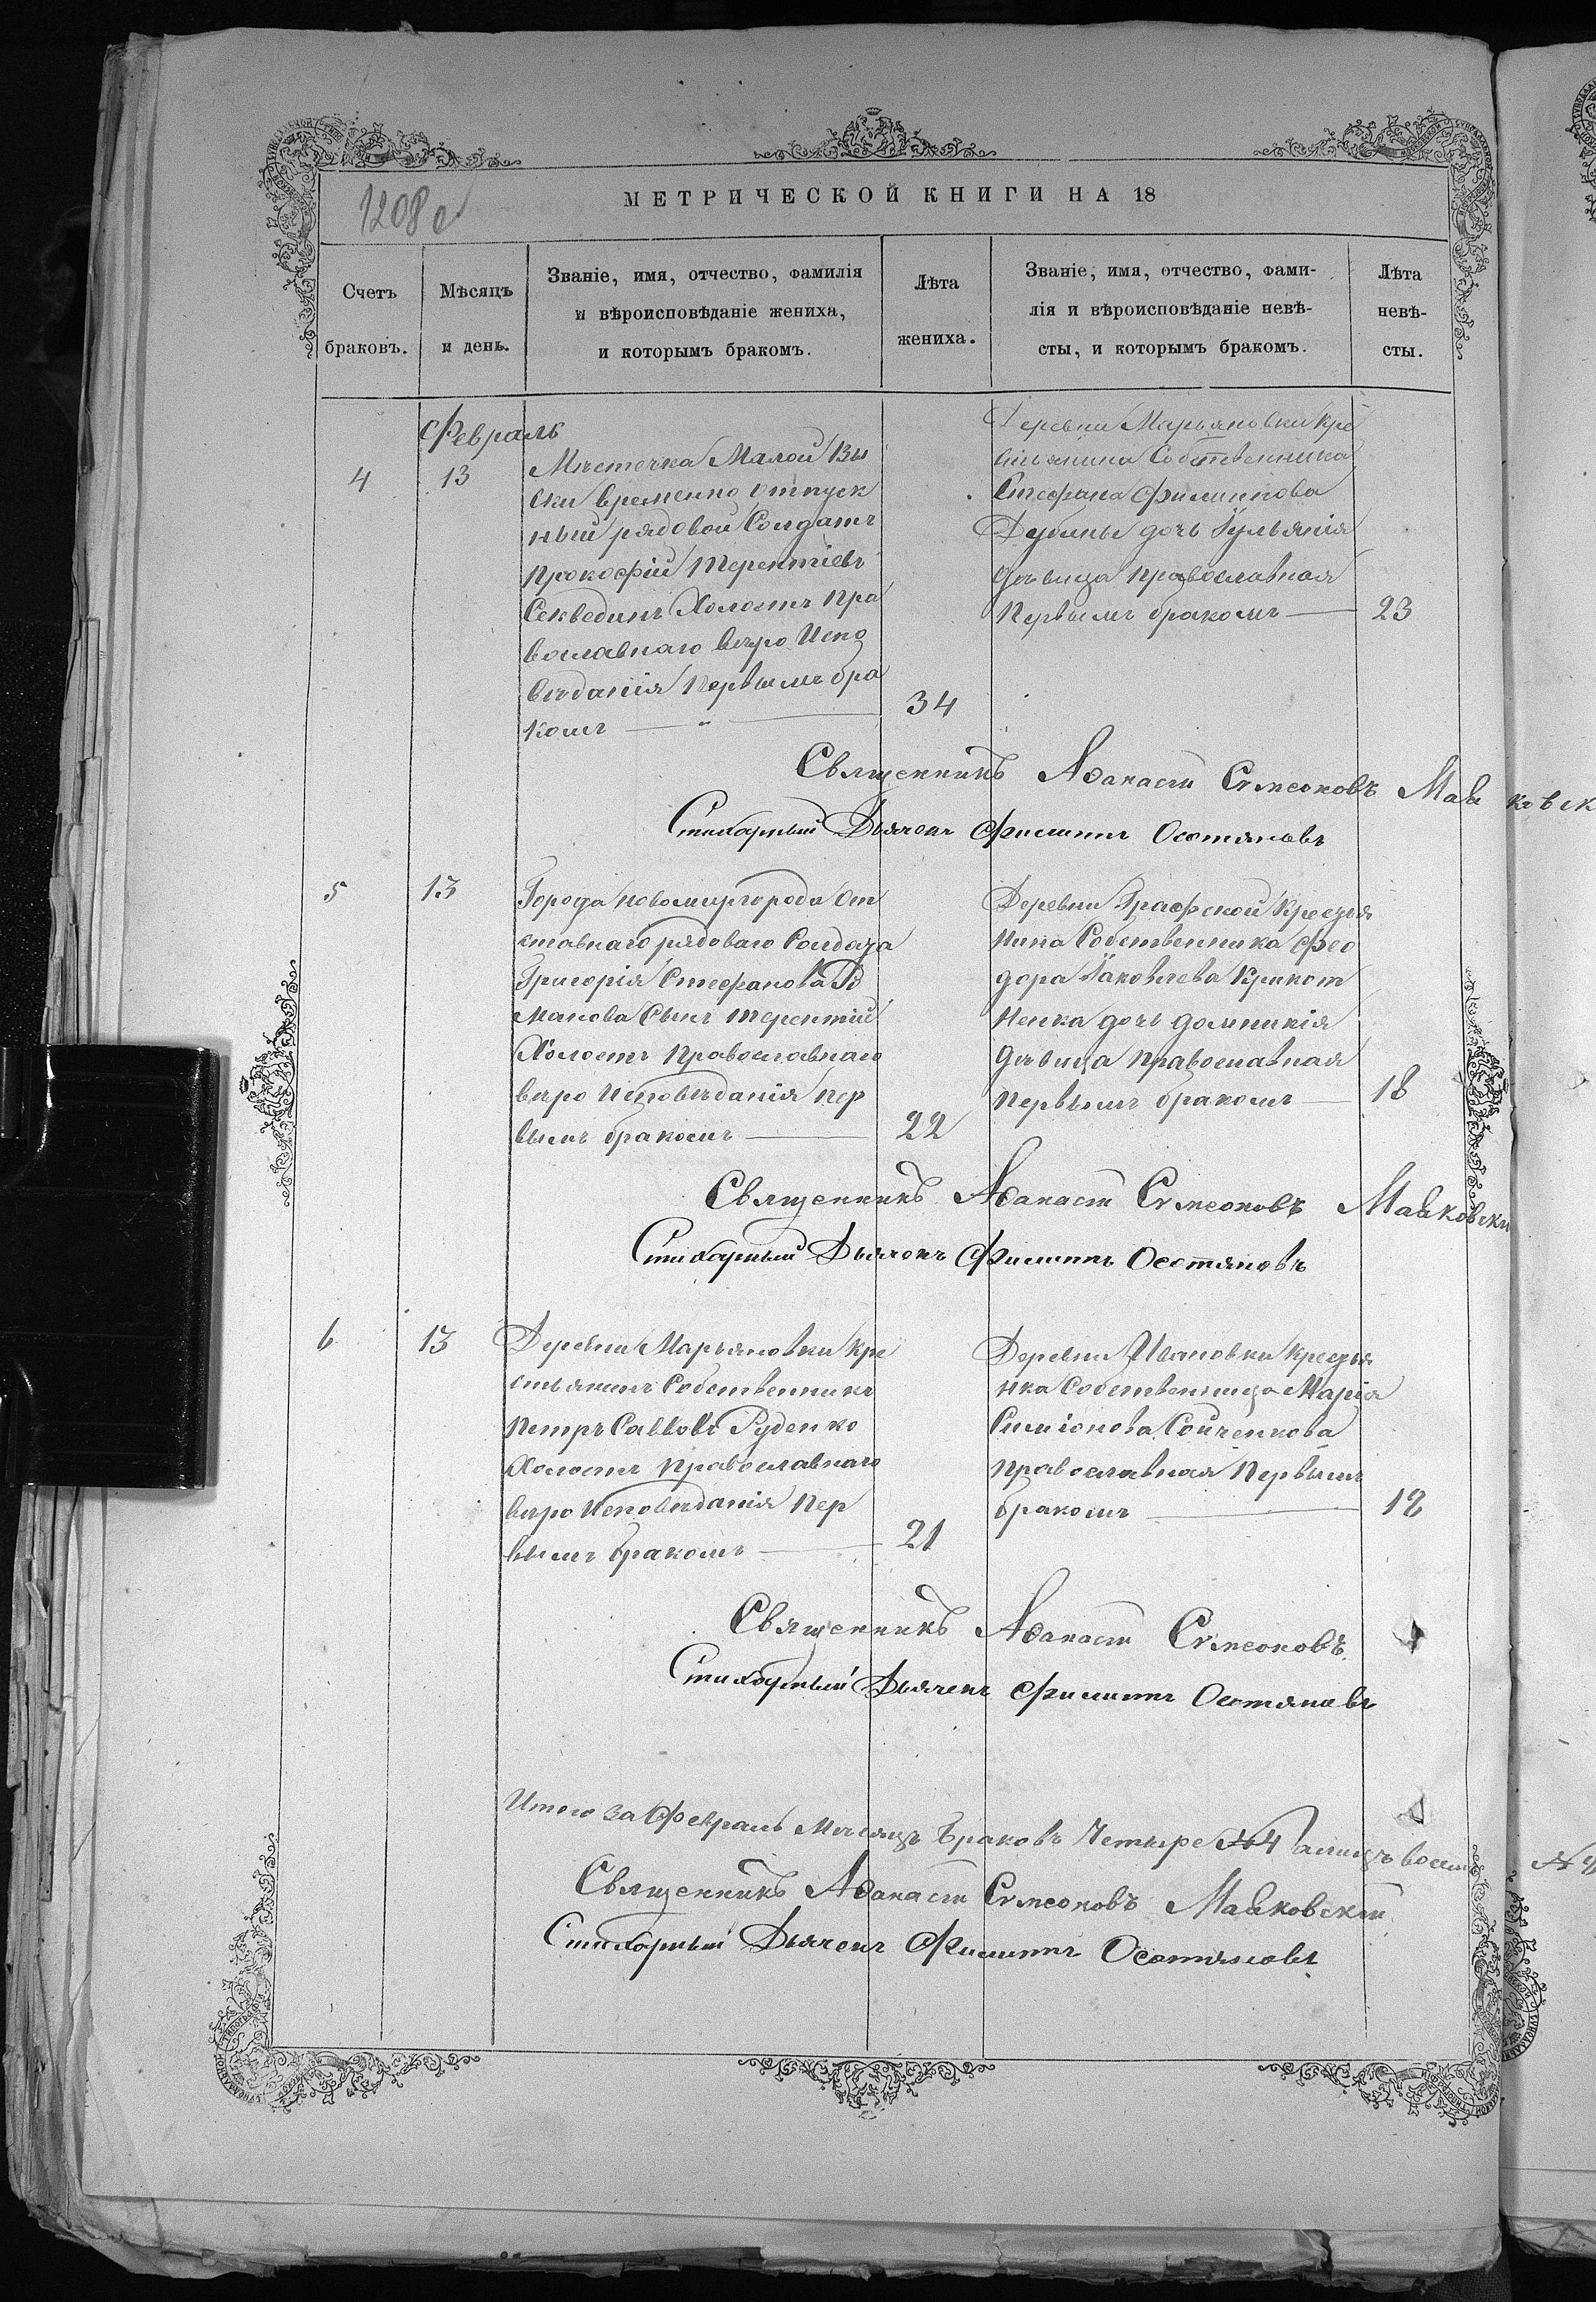 1208 о
МЕТРИЧЕСКОЙ КНИГИ НА 18
Счетъ браковъ.
Мѣсяцъ и день.
Званіе, имя, отчество, фамилія
и вѣроисповѣданіе жениха,
и которымъ бракомъ.
Лѣта
жениха.
Званіе, имя, отчество, фами-
лія и вѣроисповѣданіе невѣ-
сты, и которымъ бракомъ.
Лѣта
невѣ-
сты.
Февраль
4
13
Мѣстечка Малой Вы
ски временно отпуск
ный рядовой Солдатъ
Прокофій Терентіевъ
Секвединъ Холостъ Пра
вославнаго вѣро Испо
вѣданія Первымъ бра
комъ
34
Деревни Марьяновки Кре
стьянина Собственника
Стефана Филиппова
Дубины дочь Іульянія
дѣвица православная
Первымъ бракомъ
23
Священникъ Аѳанасій Сѵмеоновъ Маяковск
Стихарный Дьячекъ Филиппъ Остяновъ
5
13
Города Новомиргорода От
ставнаго рядоваго Солдата
Григорія Стефанова Ро
манова Сынъ Терентій
Холостъ Православнаго
вѣро Исповѣданія Пер
вымъ бракомъ
22
Деревни Графской Крестья
нина Собственника Фео
дора Іаковлева Крикот
ненка дочь Домникія
Дѣвица Православная
Первымъ бракомъ
18
Священникъ Аѳанасій Сѵмеоновъ Маяковскі
Стихарный Дьячекъ Филиппъ Остяновъ
6
13
Деревни Марьяновки Кре
стьянинъ Собственникъ
Петръ Саввовъ Руденко
Холостъ Православнаго
вѣро Исповѣданія Пер
вымъ бракомъ
21
Деревни Ивановки Крестья
нка Собственница Марія
Симіонова Сойченкова
Православная Первымъ
бракомъ
18
Священникъ Аѳанасій Сѵмеоновъ
Стихарный Дьячекъ Филиппъ Остяновъ
Итого за Февраль Мѣсяцъ Браковъ Четыре №4 а лицъ восемь №8
Священникъ Аѳанасій Сѵмеоновъ Маяковскій
Стихарный Дьячекъ Филиппъ Остяновъ